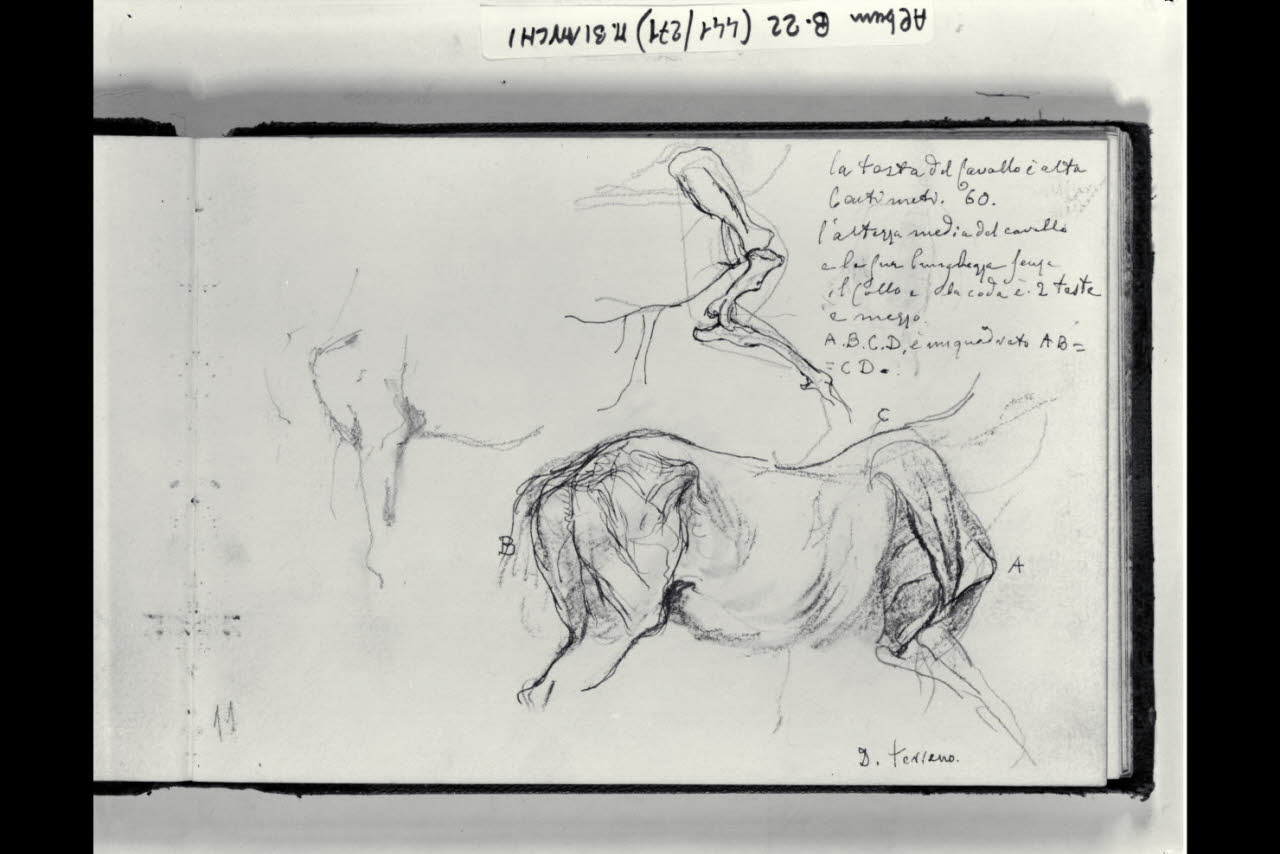 Album B.22 (441/271) M. BIANCHI
la testa del Cavallo è alta
Centimetri. 60.
l'altezza media del cavallo
e la sua lunghezza senza
il Collo e la coda è. 2 teste
e mezzo.
A.B.C.D, è un quadrato AB=
=CD.
C
B
A
D. terreno.
11